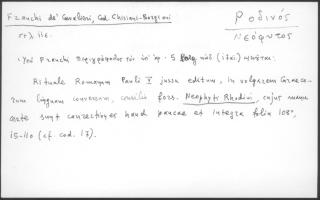 Franchi de' Cavalieri, Cod. Chisiani-Borgiani
Ροδινός
Νεόφυτος
σελ 116.
Ὑπὸ Franchi περιγράφεται τὸν ὑπ' ἀρ. 5 κώδ.
Rituale Romanum Pauli V jussu editum, in vulgarem Graeco-
rum linguam conversum, consilio fors. Neophyti Rhodini, cujus manu
certe sunt correctiones haud paucae et integra folia 108v,
15-110 (cf cod. 17).